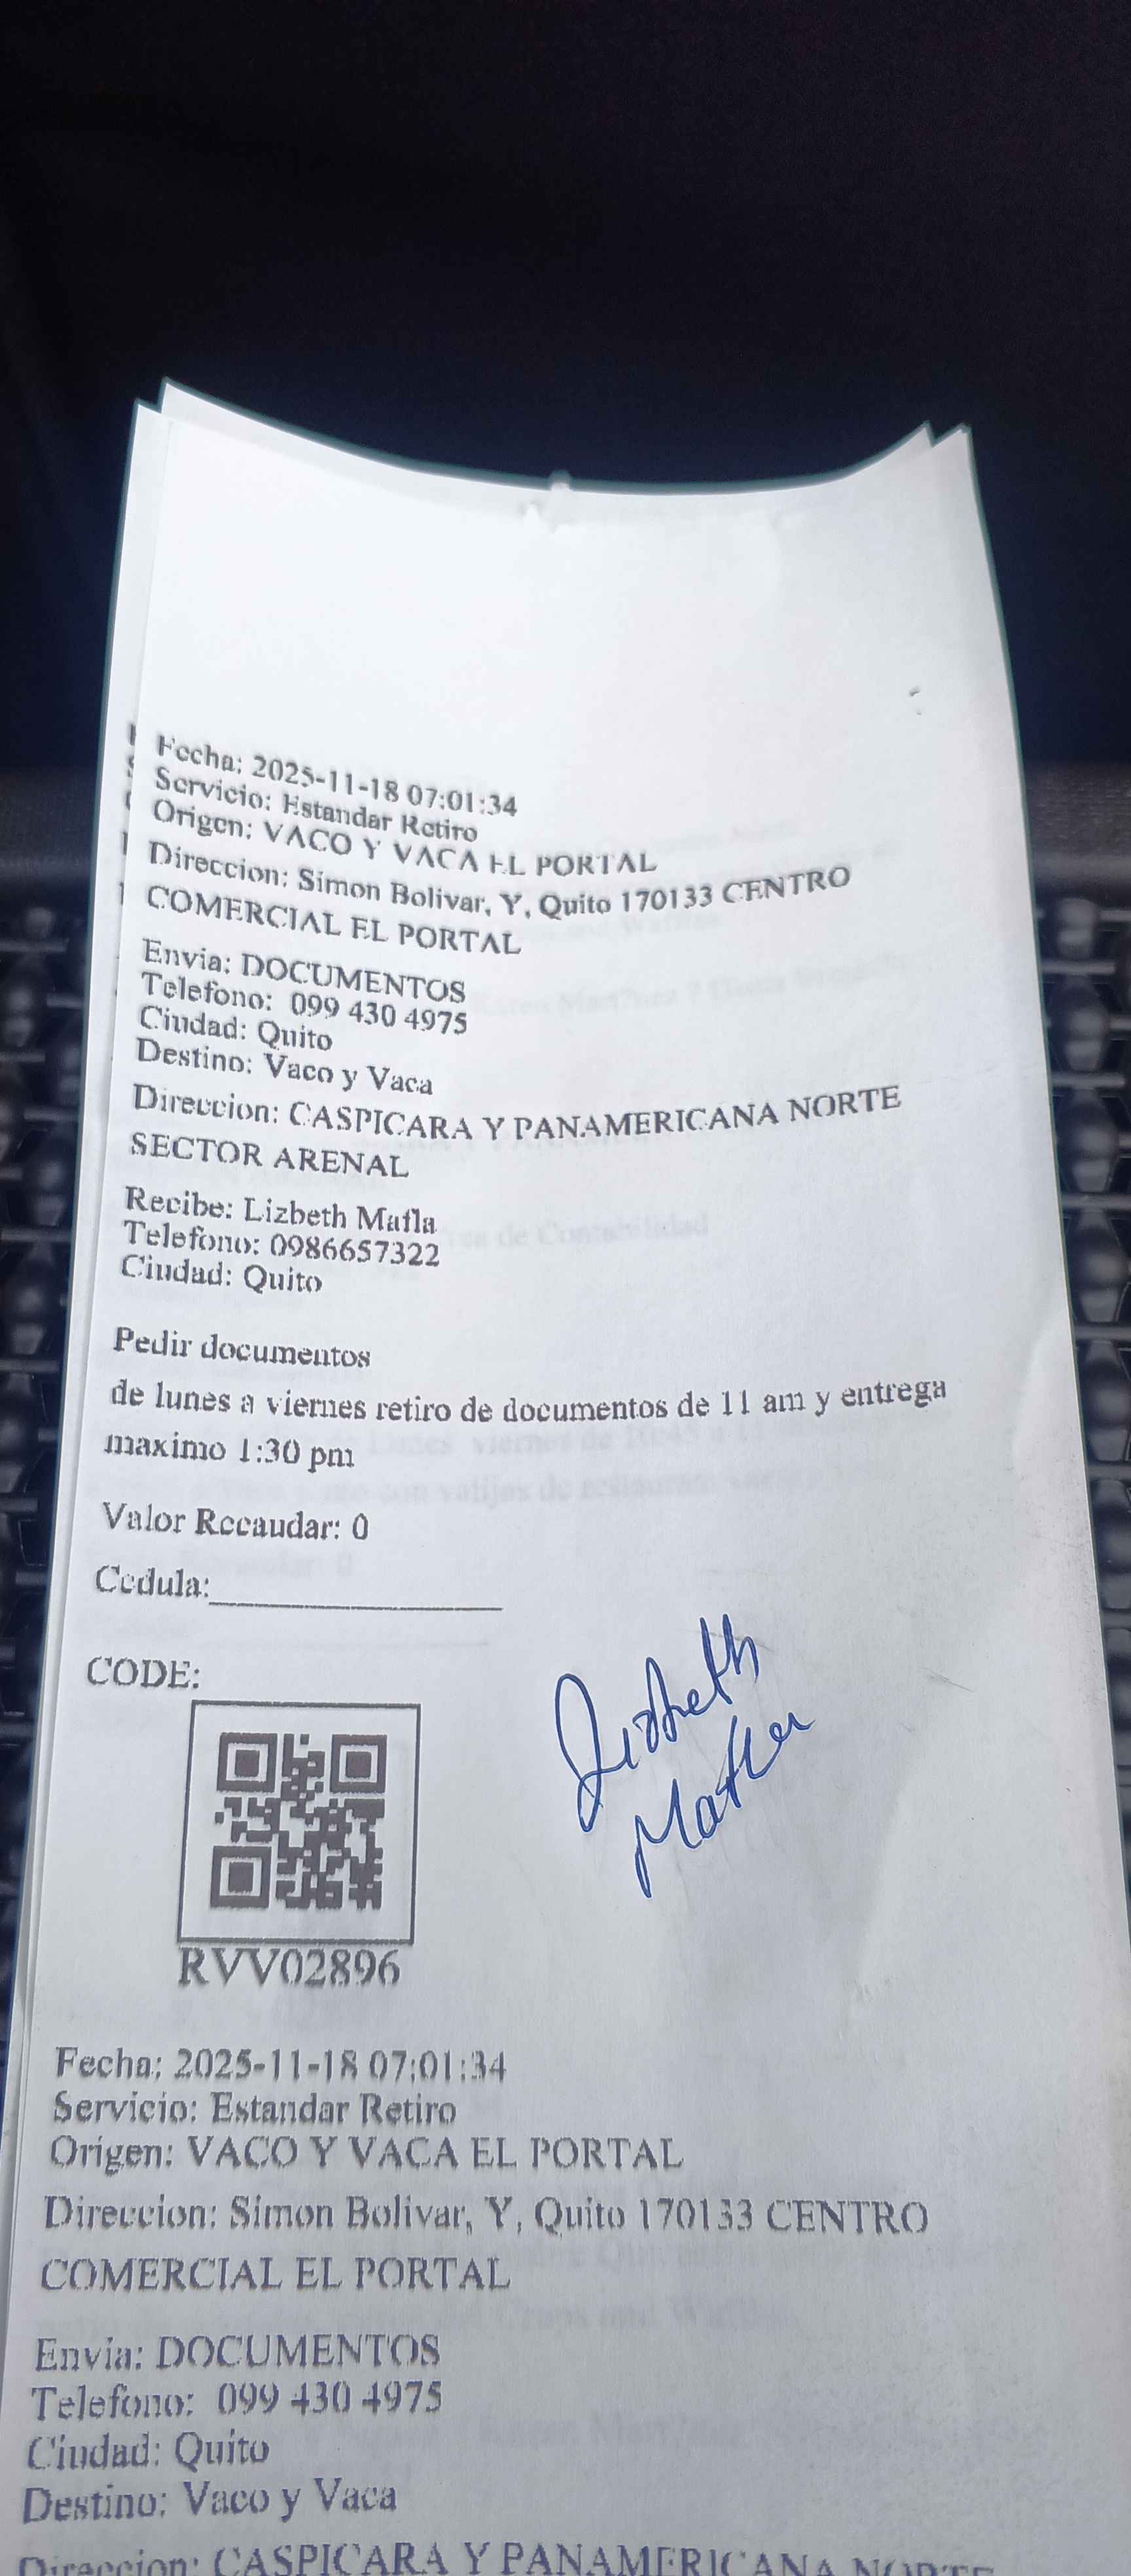 Fecha: 2025-11-18 07:01:34
Servicio: Estandar Retiro
Origen: VACO Y VACA EL PORTAL
Direccion: Simon Bolivar, Y, Quito 170133 CENTRO
COMERCIAL EL PORTAL
Envia: DOCUMENTOS
Telefono: 099 430 4975
Ciudad: Quito
Destino: Vaco y Vaca
Direccion: CASPICARA Y PANAMERICANA NORTE
SECTOR ARENAL
Recibe: Lizbeth Mafla
Telefono: 0986657322
Ciudad: Quito
Pedir documentos
de lunes a viernes retiro de documentos de 11 am y entrega
maximo 1:30 pm
Valor Recaudar: 0
Cedula:
CODE:
Lizbeth
Mafla
RVV02896
Fecha: 2025-11-18 07:01:34
Servicio: Estandar Retiro
Origen: VACO Y VACA EL PORTAL
Direccion: Simon Bolivar, Y, Quito 170133 CENTRO
COMERCIAL EL PORTAL
Envia: DOCUMENTOS
Telefono: 099 430 4975
Ciudad: Quito
Destino: Vaco y Vaca
Direccion: CASPICARA Y PANAMERICANA NORTE